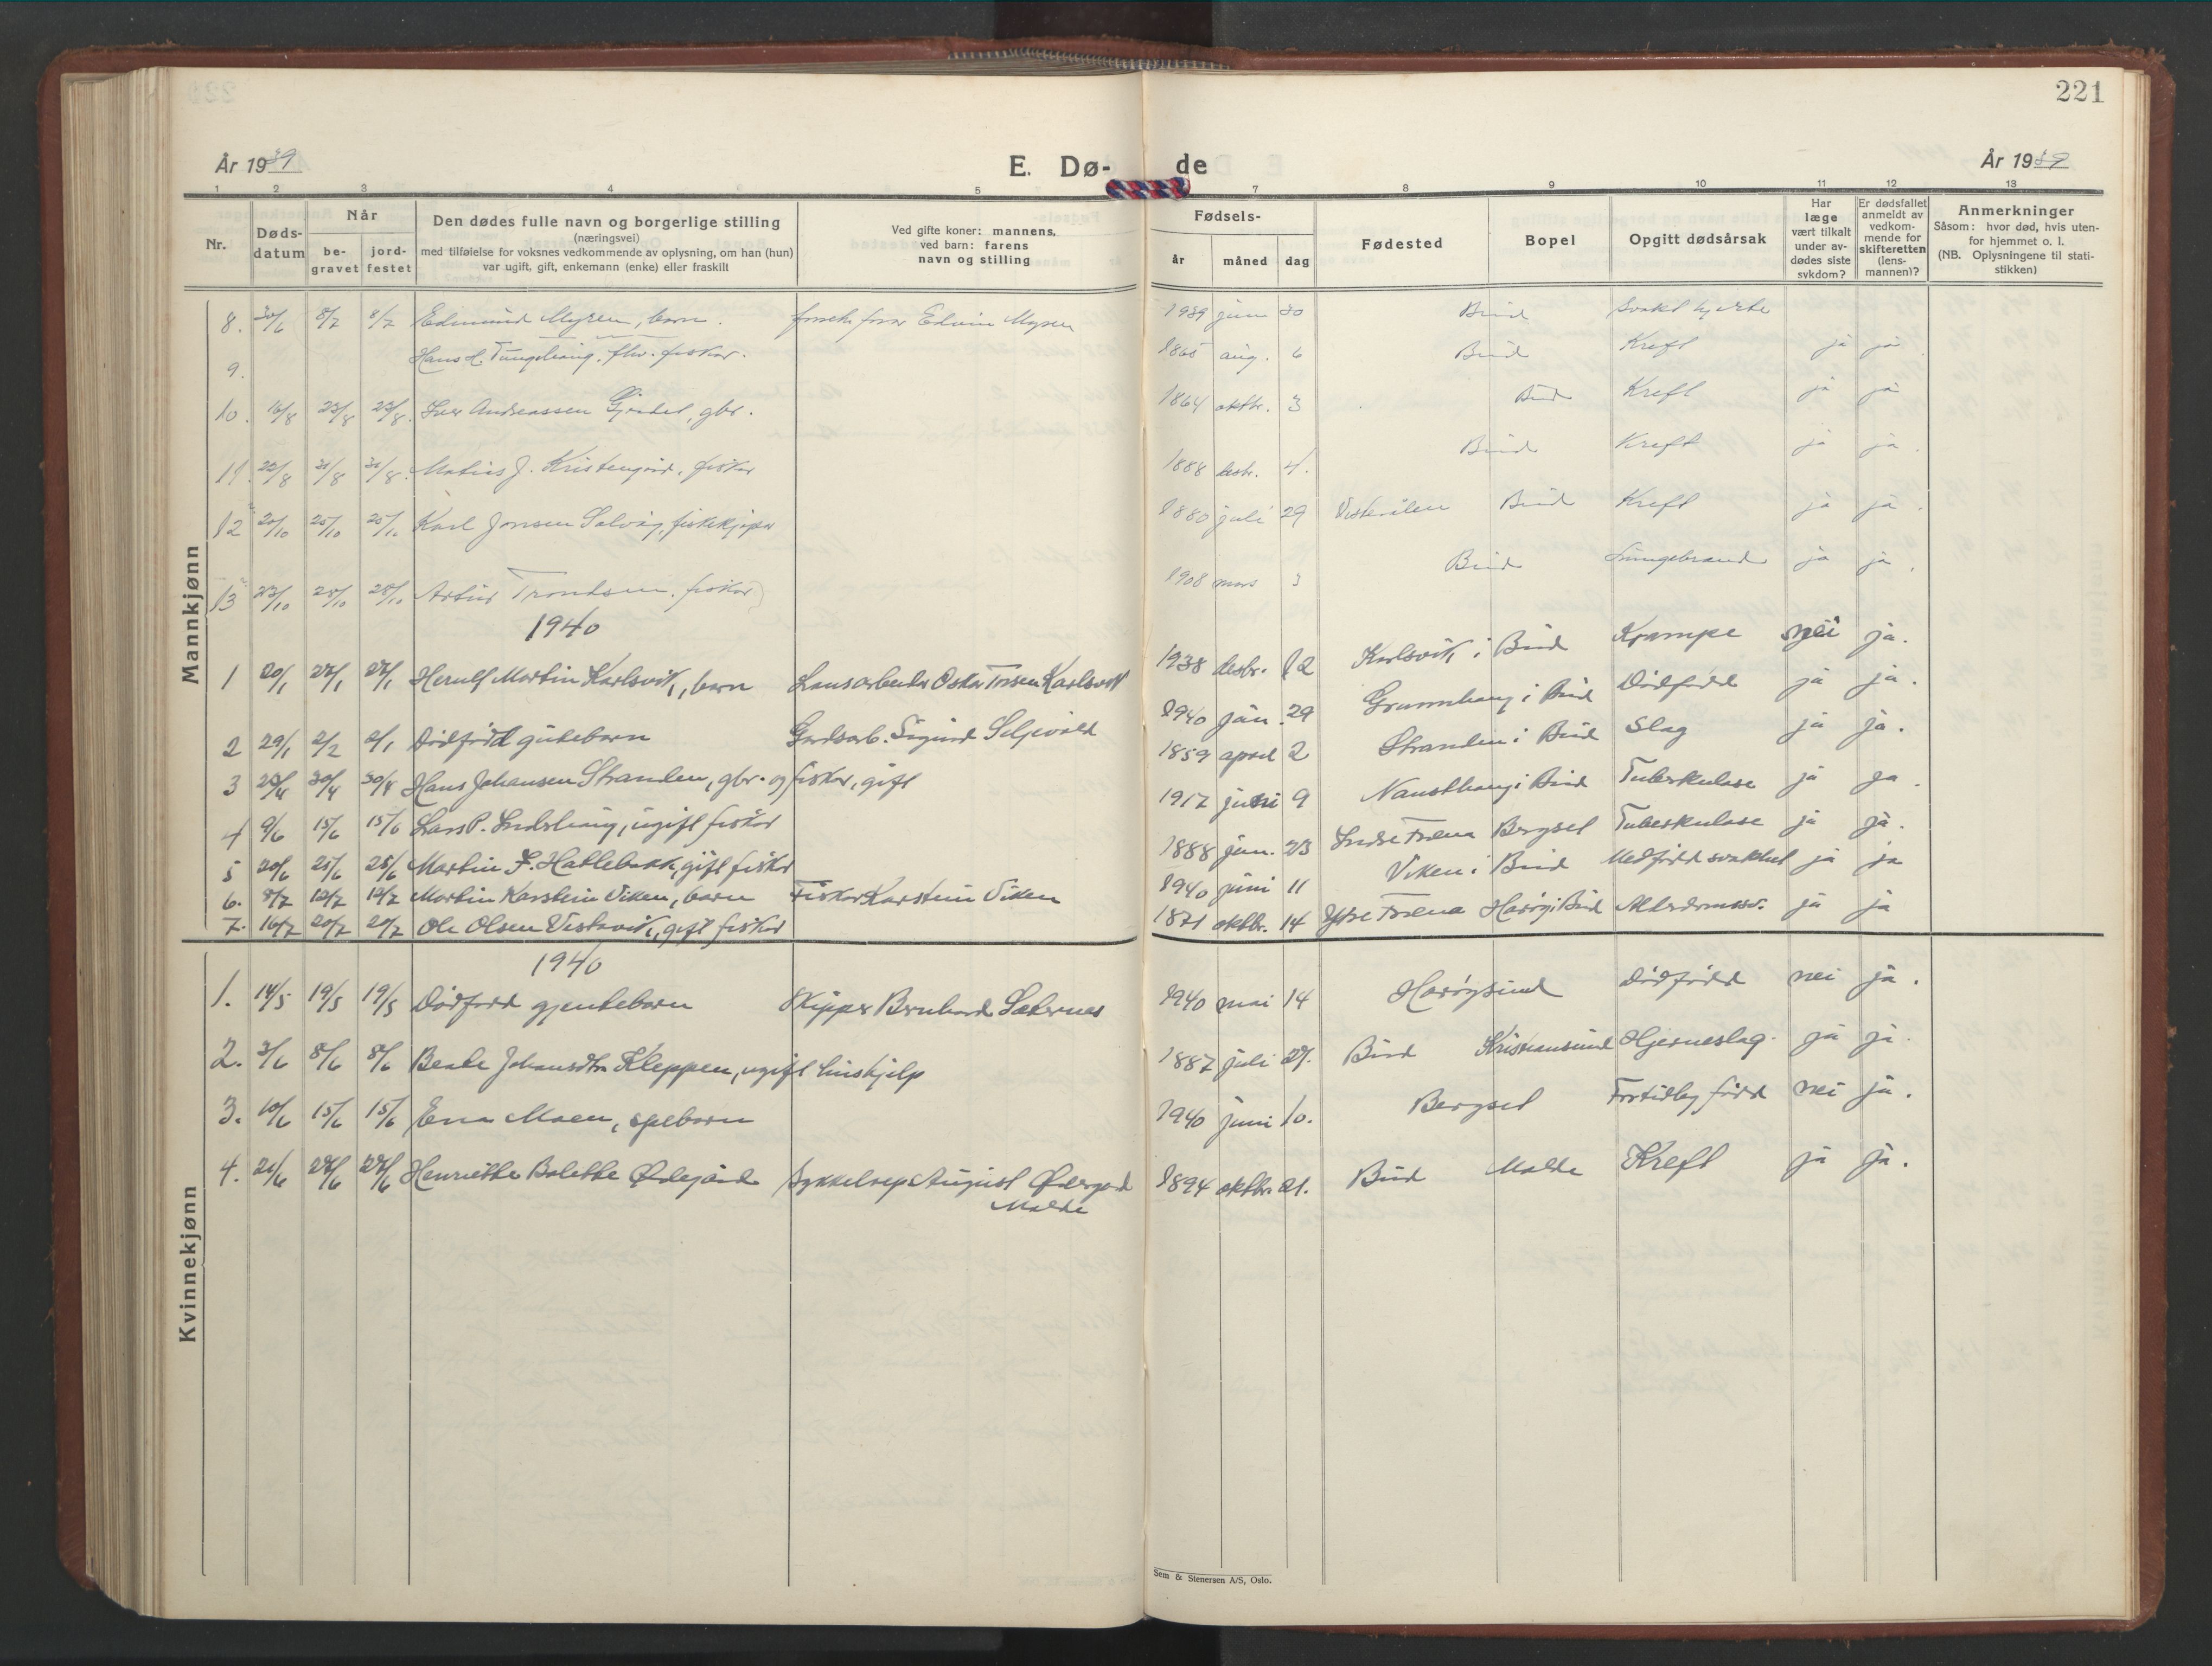 221
År 1939 E. Dø- de År 1939
1 2 3 4 5 7 8 9 10 11 12 13
Nr. Døds-datum Når be-gravet jord-festet
Den dødes fulle navn og borgerlige stilling
(næringsvei)
med tilføielse for voksnes vedkommende av oplysning, om han (hun)
var ugift, gift, enkemann (enke) eller fraskilt
Ved gifte koner: mannens,
ved barn: farens
navn og stilling
Fødsels-
år måned dag
Fødested Bopel Opgitt dødsårsak
Har læge vært tilkalt under av-dødes siste sykdom?
Er dødsfallet anmeldt av vedkom-mende for skifteretten (lens-mannen)?
Anmerkninger
Såsom: hvor død, hvis uten-
for hjemmet o. l.
(NB. Oplysningene til stati-
stikken)
Mannkjønn
8. 30/6 8/7 8/7 Edmund Myren, barn. Edvin Myren 1939 juni 30 Bud Svakt hjerte
9. Hans H. Tungehaug, fhv. fisker. 1865 aug. 6 Bud Kreft ja ja
10. 16/8 23/8 23/8 Iver Andreassen gbr. 1864 oktbr. 3 Bud Kreft ja ja
11. 22/8 31/8 31/8 Matias J. Kristengård, fisker 1888 desbr. 4. Bud Kreft ja ja
12 20/10 25/10 25/10 Karl Jonsen Solvåg, fiskekjøper 1880 juli 29 Vesterålen Bud Kreft ja ja
13 23/10 28/10 28/10 Artur Trondsen, fisker 1908 mars 3 Bud Lungebrand ja ja
1940
1 20/1 27/1 27/1 Herulf Martin Karlsvik, barn Lausarbeider Oskar Karlsvik 1938 desbr. 12 Karlsvik i Bud Krampe nei ja.
2 29/1 2/2 2/1 Dødfødd gutebarn Gardsarb. Sigurd Seljevold 1940 jan. 29 i Bud Dødfødd ja ja.
3 30/4 30/4 Hans Johansen Stranden, gbr. og fisker, gift 1859 april 2 Stranden i Bud Slag ja ja.
4 9/6 15/6 15/6 Lars P. Inderhaug, ugift fisker 1917 juni 9 Nausthaug i Bud Tuberkulose ja ja
5 20/6 25/6 25/6 Martin F. Hatlebakk, gift fisker 1888 jan. 23 Indre Fræna Bergset Tuberkulose ja ja.
6. 8/7 12/7 12/7 Martin Karstein Viken, barn Fisker Karstein Viken 1940 juni 11 Viken i Bud Medfødd svakhet ja ja
7. 16/7 20/7 20/7 Ole Olsen Vestavik, gift fisker 1871 oktbr. 14 Ytre Fræna Harøy i Bud Alderdomssv. ja ja
Kvinnekjønn
1940
1. 14/5 19/5 19/5 Dødfødd gjentebarn Skipper Bernhard Sæternes 1940 mai 14 Harøysund Dødfødd nei ja.
2. 3/6 8/6 8/6 Beate Johansdtr. Kleppen, ugift hushjelp 1887 juli 27. Bud Kristiansund Hjerneslag. ja ja.
3. 10/6 15/6 15/6 Erna Moen, spebarn 1940 juni 10. Bergset Fortidleg fødd nei ja.
4. 21/6 27/6 27/6 Henriette Bolette Ødegård Sykkelrep. August Ødegård 1894 oktbr. 21. Bud Molde Kreft ja ja.
Molde
Sem & Stenersen A/S, Oslo.